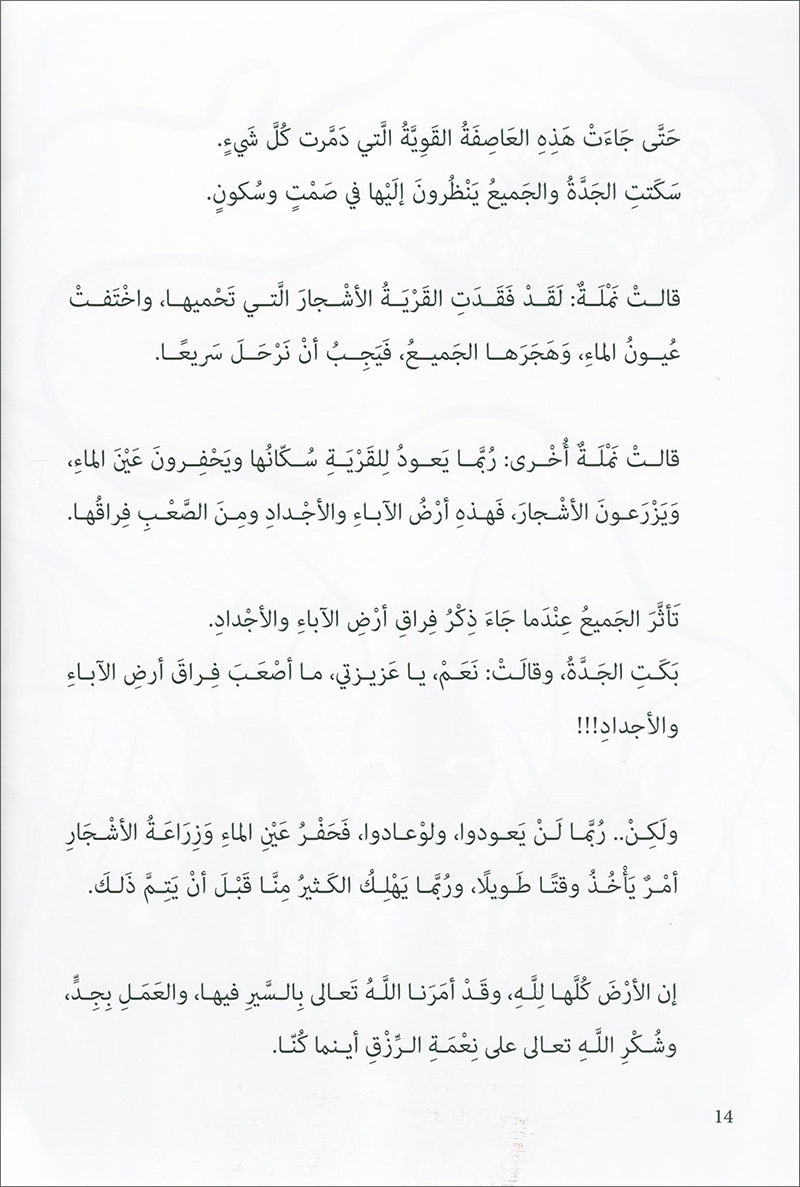 حَتَّى جَاءَتْ هَذِهِ العَاصِفَةُ القَوِيَّةُ الَّتي دَمَّرت كُلَّ شَيءٍ.
سَكَتتِ الجَدَّةُ والجَميعُ يَنْظُرونَ إلَيْها في صَمْتٍ وسُكونٍ.
قالـتْ نَمْلَـةٌ: لَقَـدْ فَقَـدَتِ القَرْيَـةُ الأشْـجارَ الَّتـي تَحْميهـا، واخْتَفـتْ
عُيـونُ الماءِ، وَهَجَرَهـا الجَميـعُ، فَيَجِـبُ أنْ نَرْحَـلَ سَريعًـا.
قالـتْ نَمْلَـةٌ أُخْـرى: رُبَّمـا يَعـودُ لِلقَرْيَـةِ سُـكّانُها ويَحْفِـرونَ عَيْنَ الماءِ،
وَيَزْرَعـونَ الأشْـجارَ، فَهـذهِ أرْضُ الآبـاءِ والأجْـدادِ ومِـنَ الصَّعْـبِ فِراقُهـا.
تَأثَّرَ الجَميعُ عِنْدَما جَاءَ ذِكْرُ فِراقِ أرْضِ الآباءِ والأجْدادِ.
بَكَتِ الجَـدَّةُ، وقالَـتْ: نَعَـمْ، يـا عَزيـزتي، مـا أصْعَـبَ فِـراقَ أرضِ الآبـاءِ
والأجدادِ!!!
ولَكِـنْ.. رُبَّمـا لَـنْ يَعـودوا، ولوْعـادوا، فَحَفْـرُ عَيْنِ الماءِ وَزِرَاعَـةُ الأشْـجَارِ
أمْـرٌ يَأْخُـذُ وقتًـا طَـويلًا، ورُبَّمـا يَهْلِـكُ الكَـثيرُ مِنَّـا قَبْـلَ أنْ يَتِـمَّ ذَلـكَ.
إن الأرْضَ كُلَّهـا لِلَّـهِ، وقَـدْ أمَرَنـا اللَّـهُ تَعـالى بِالـسَّيرِ فيهـا، والعَمَـلِ بِجِـدٍّ،
وشُـكْرِ اللَّـهِ تعـالى على نِعْمَـةِ الـرِّزْقِ أيـنما كُنّـا.
14